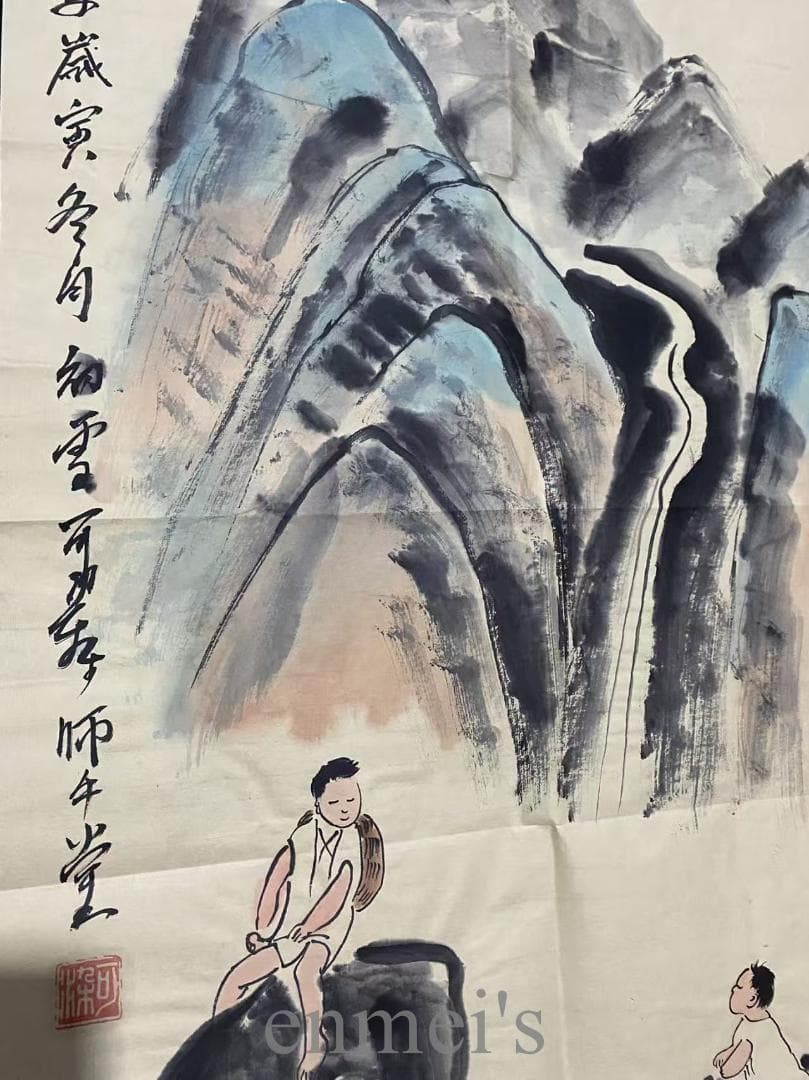 歲寅冬月初雪可染於師牛堂
可染
enmei's